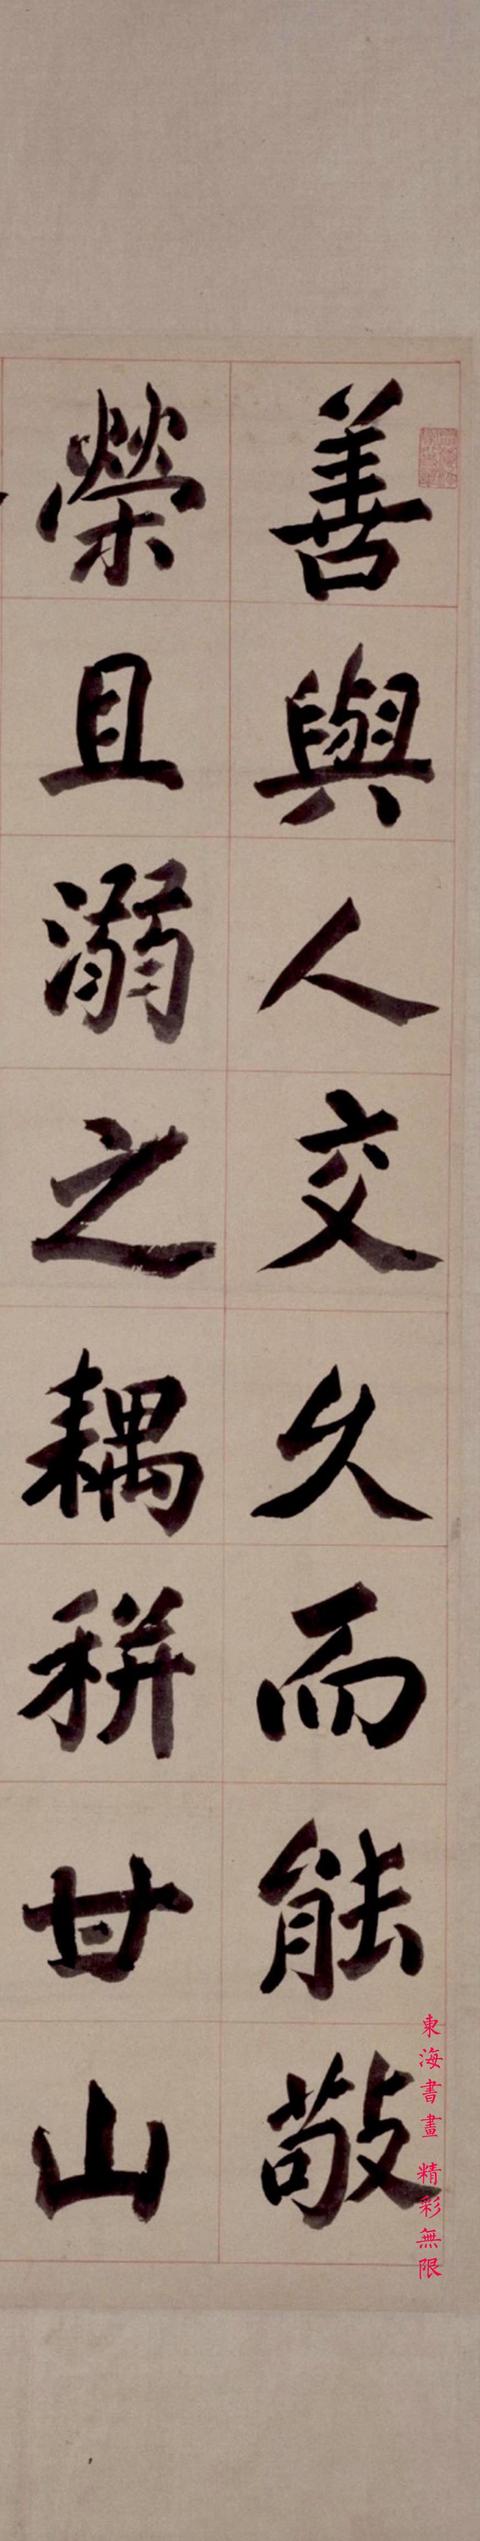 善與人交久而能敬
榮且溺之耦耕甘山
東海書畫 精彩無限